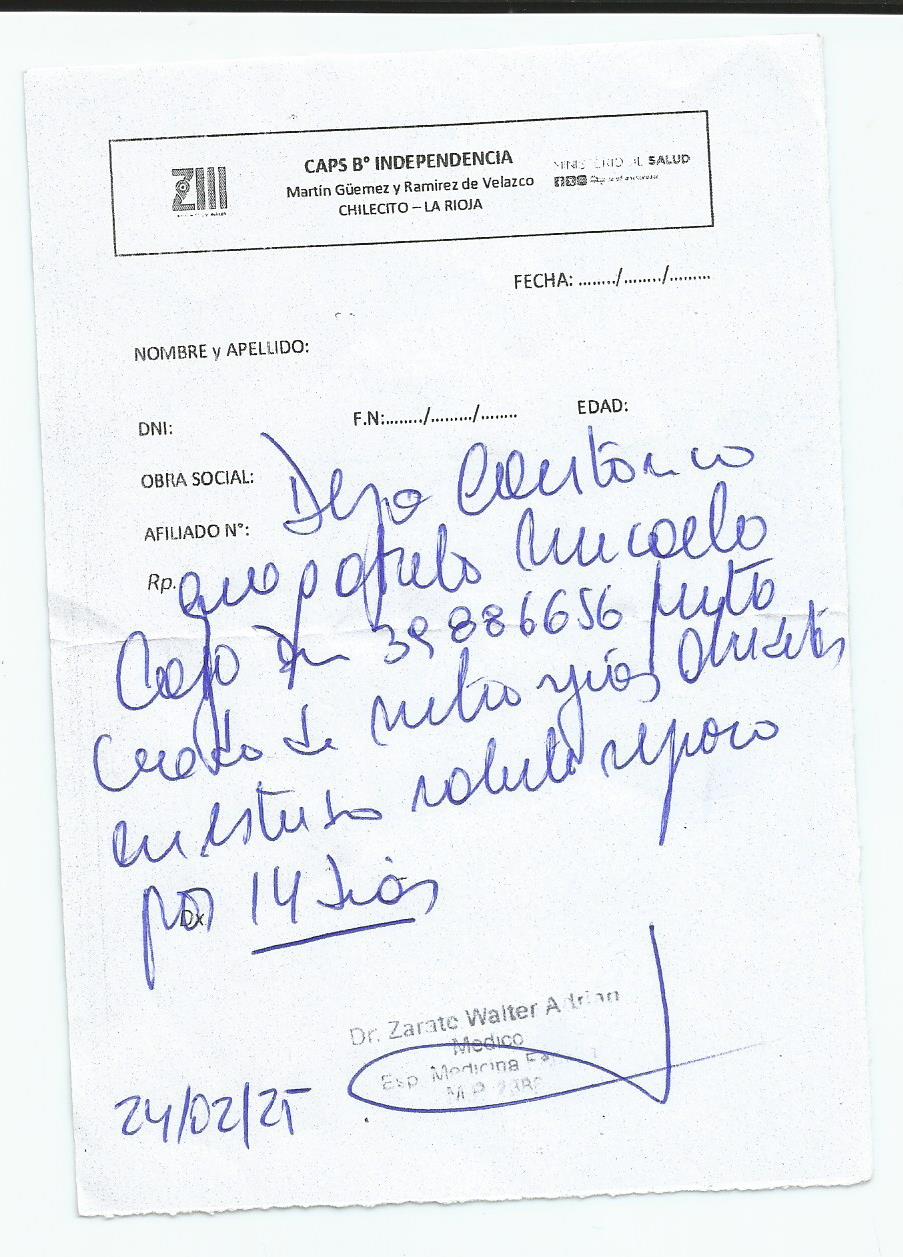 CAPS B° INDEPENDENCIA
Martín Güemez y Ramirez de Velazco
CHILECITO – LA RIOJA
MINISTERIO DE SALUD
FECHA: ......../......../.........
NOMBRE y APELLIDO:
DNI:
F.N:......../........./........
EDAD:
OBRA SOCIAL:
AFILIADO N°:
Rp.
Dejo Constancia
que Micaela
39886656
Cuadro de
en estudio solicito reposo
por 14 días
Dx
Dr. Zarate Walter Adrian
Medico
Esp. Medicina
M.P.
24/02/25